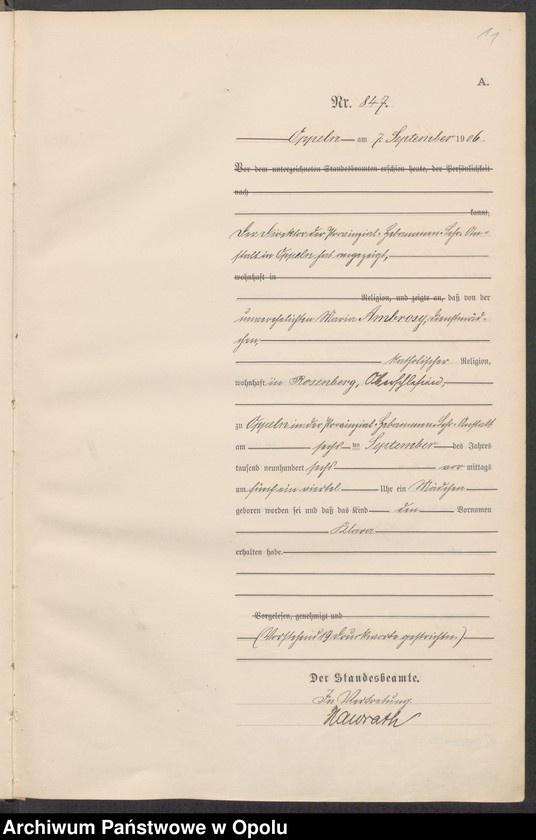 11
A.
Nr. 847.
Oppeln am 7. September 1906.
Vor dem unterzeichneten Standesbeamten erschien heute, der Persönlichkeit
nach
kannt,
Der Direktor der Provinzial-Hebammen-Lehr-An-
stalt in Oppeln hat angezeigt,
wohnhaft in
Religion, und zeigte an, daß von der
unverehelichten Maria Ambrosy, Dienstmäd-
chen,
katholischer Religion,
wohnhaft in Rosenberg, Oberschlesien,
zu Oppeln in der Provinzial-Hebammen-Lehr-Anstalt
am sechsten September des Jahres
tausend neunhundert sechs vor mittags
um fünf ein viertel Uhr ein Mädchen
geboren worden sei und daß das Kind den Vornamen
Klara
erhalten habe.
Vorgelesen, genehmigt und
(Vorstehend 19 Druckworte gestrichen.)
Der Standesbeamte.
In Vertretung
Nawrath
Archiwum Państwowe w Opolu